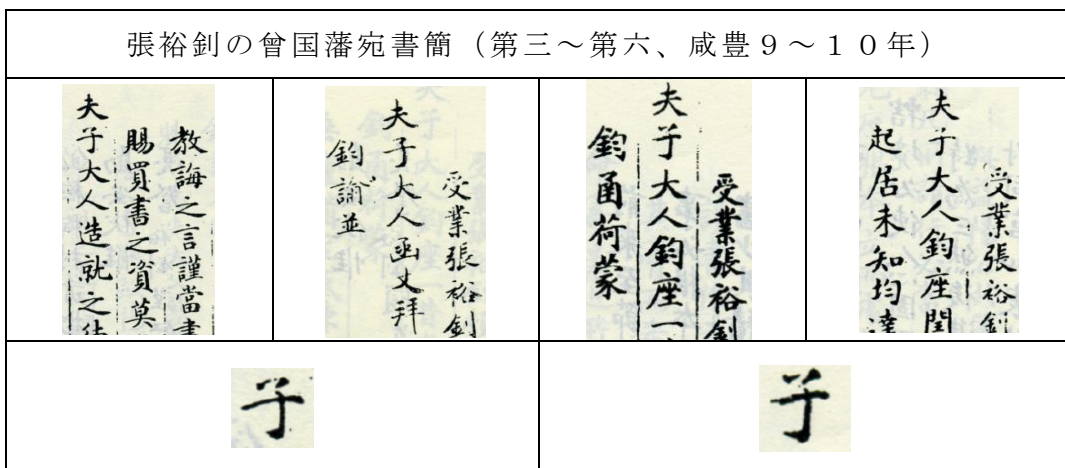 張裕釗の曾国藩宛書簡（第三～第六、咸豊９～１０年）
教誨之言謹當書
賜買書之資莫
夫子大人造就之
受業張裕釗
夫子大人函丈拜
鈞諭並
受業張裕釗
夫子大人鈞座一
鈞函荷蒙
受業張裕釗
夫子大人鈞座閏
起居未知均達
子
子